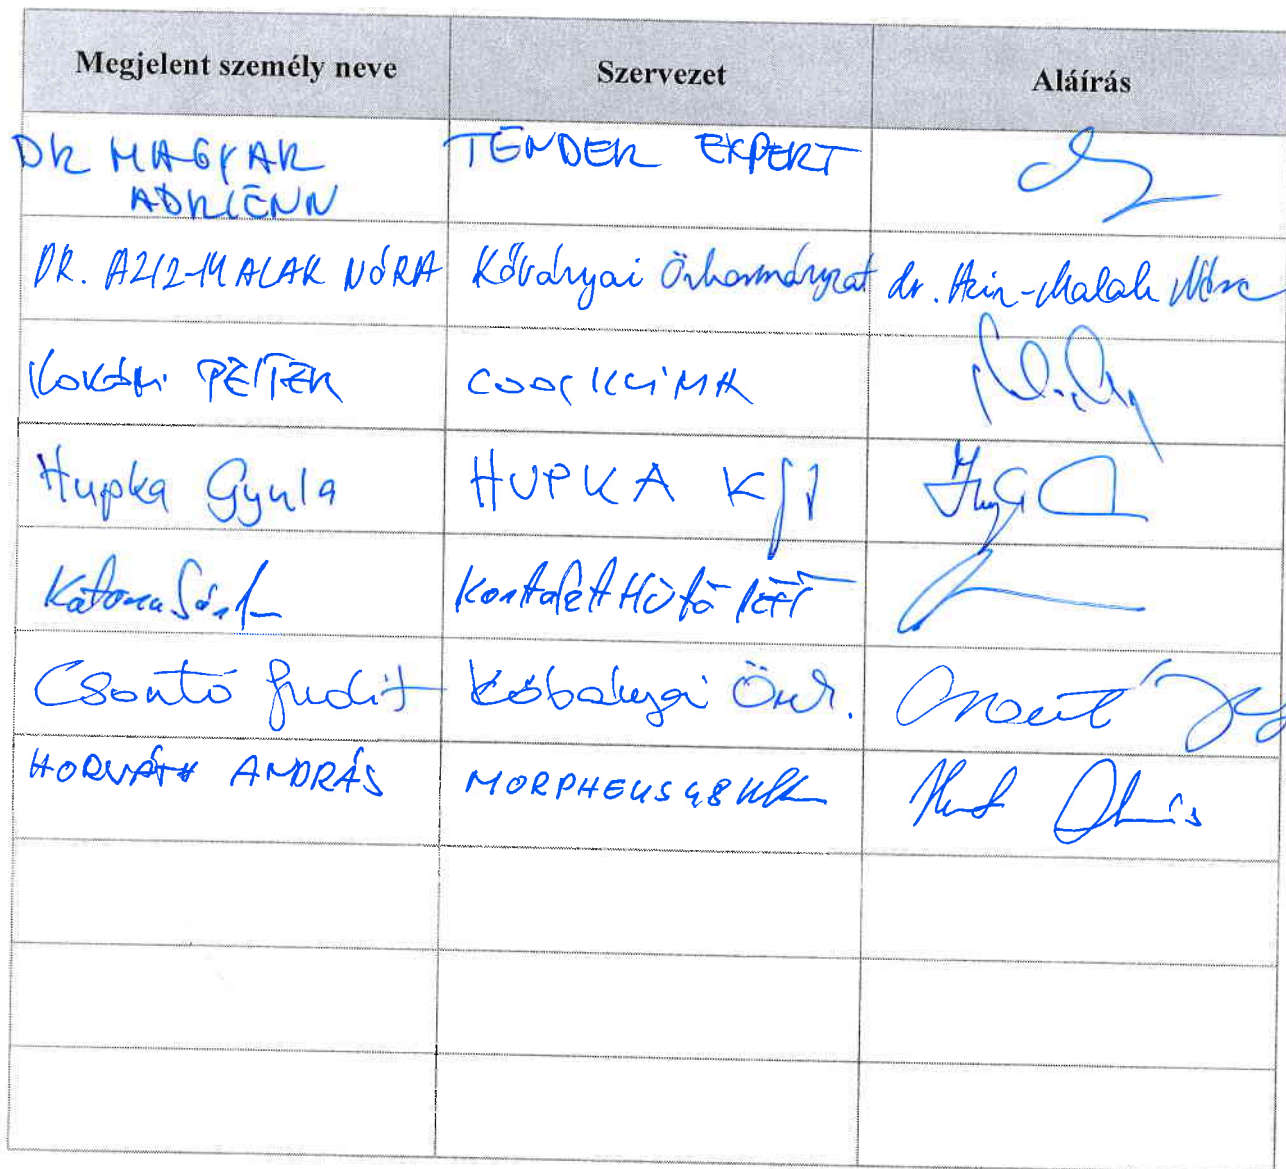 Megjelent személy neve Szervezet Aláírás
DR MAGYAR TENDER EXPERT
ADRIENN
DR. AZIZ-MALAK NÓRA Kőbányai Önkormányzat dr. Aziz-Malak Nóra
PÉTER COOL KLIMA
Hupka Gyula HUPKA Kft
Katona Hűtő
Csontó Judit Kőbányai Önk. Csontó
HORVÁTH ANDRÁS MORPHEUS 48 Kft